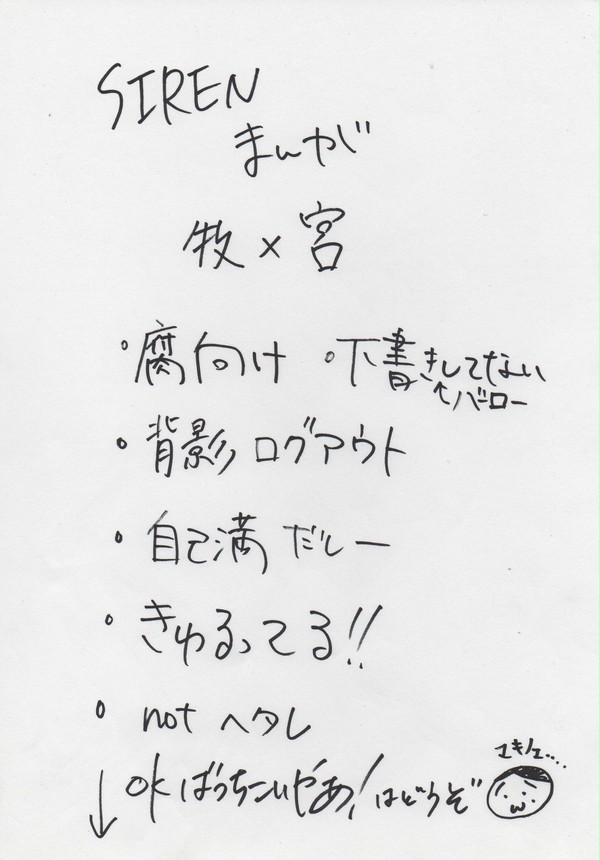 SIREN
まんが
牧×宮
・腐向け ・下書きしてない
↑バーロー
・背影ログアウト
・自己満だしー
・きゅるってる!!
・not ヘタレ
↓ OKばっちこいやあ!はどうぞ
ユキノエ....